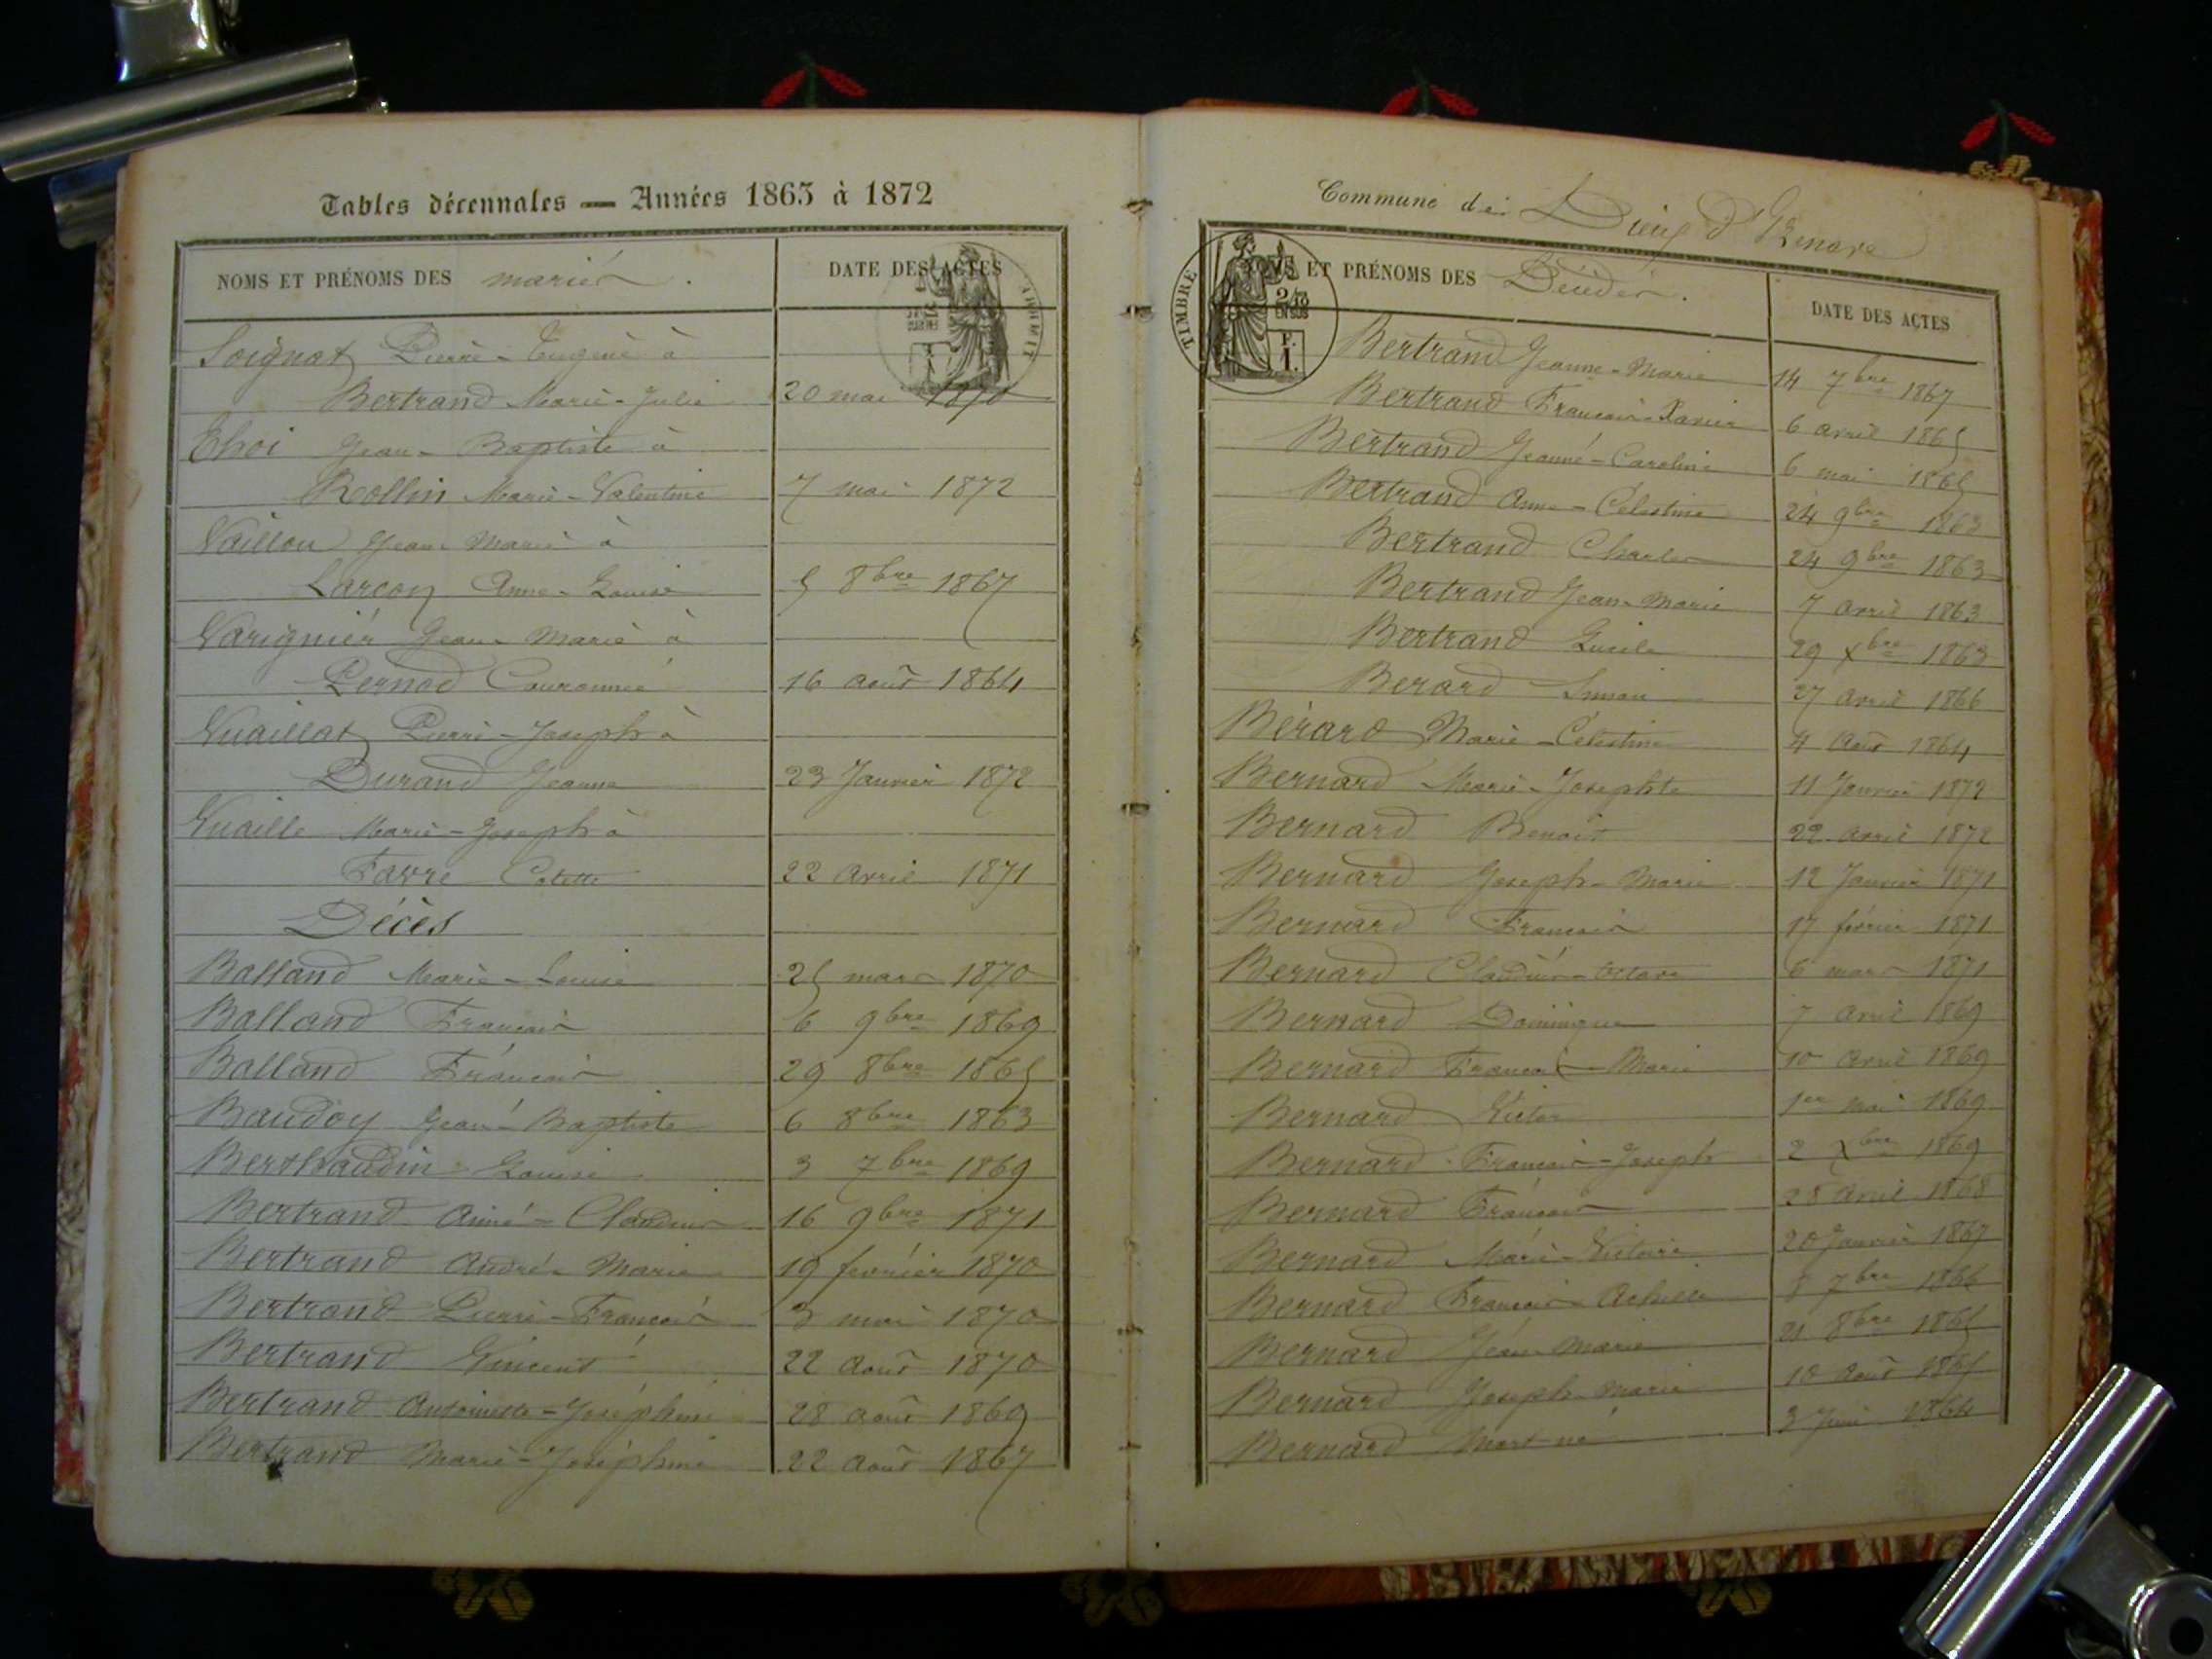 Tables décennales — Années 1863 à 1872
NOMS ET PRÉNOMS DES mariés.
DATE DES ACTES
Soignat Pierre-Eugène à
Bertrand Marie-Julie 20 mai 1870
Thoi Jean-Baptiste à
Rollin Marie-Valentine 7 mai 1872
Vaillon Jean Marie à
Larçon Anne-Louise 5 8bre 1867
Varignier Jean-Marie à
Pernod Couronnée 16 août 1864
Vuaillat Pierre-Joseph à
Durand Jeanne 23 Janvier 1872
Vuaille Marie-Joseph à
Favre Colette 22 avril 1871
Décès
Balland Marie-Louise 25 mars 1870
Balland François 6 9bre 1869
Balland François 29 8bre 1865
Baudoy Jean-Baptiste 6 8bre 1863
Berthaudin Louise 3 7bre 1869
Bertrand Aimé-Claudius 16 9bre 1871
Bertrand André-Marie 19 février 1870
Bertrand Pierre-François 3 mai 1870
Bertrand Vincent 22 août 1870
Bertrand Antoinette-Joséphine 28 août 1869
Bertrand Marie-Joséphine 22 août 1867
Commune de
TIMBRE
2/10
EN SUS
F.
1.
ET PRÉNOMS DES Décédés.
DATE DES ACTES
Bertrand Jeanne-Marie 14 7bre 1867
Bertrand François-Xavier 6 avril 1865
Bertrand Jeanne-Caroline 6 mai 1865
Bertrand Anne-Célestine 24 9bre 1863
Bertrand Charles 24 9bre 1863
Bertrand Jean-Marie 7 avril 1863
Bertrand Lucile 29 Xbre 1863
Berard Simon 27 avril 1866
Bérard Marie-Célestine 4 août 1864
Bernard Marie-Josephte 11 Janvier 1872
Bernard Benoit 22 avril 1872
Bernard Joseph-Marie 12 Janvier 1871
Bernard François 17 février 1871
Bernard Claudius-Octave 6 mars 1871
Bernard Dominique 7 avril 1869
Bernard François-Marie 10 avril 1869
Bernard Victor 1er mai 1869
Bernard François-Joseph 2 Xbre 1869
Bernard François 28 avril 1868
Bernard Marie-Victoire 20 Janvier 1867
Bernard François-Achille 8 7bre 1866
Bernard Jean-Marie 21 8bre 1865
Bernard Joseph-Marie 10 août 1865
Bernard Mort-né 3 Juin 1864